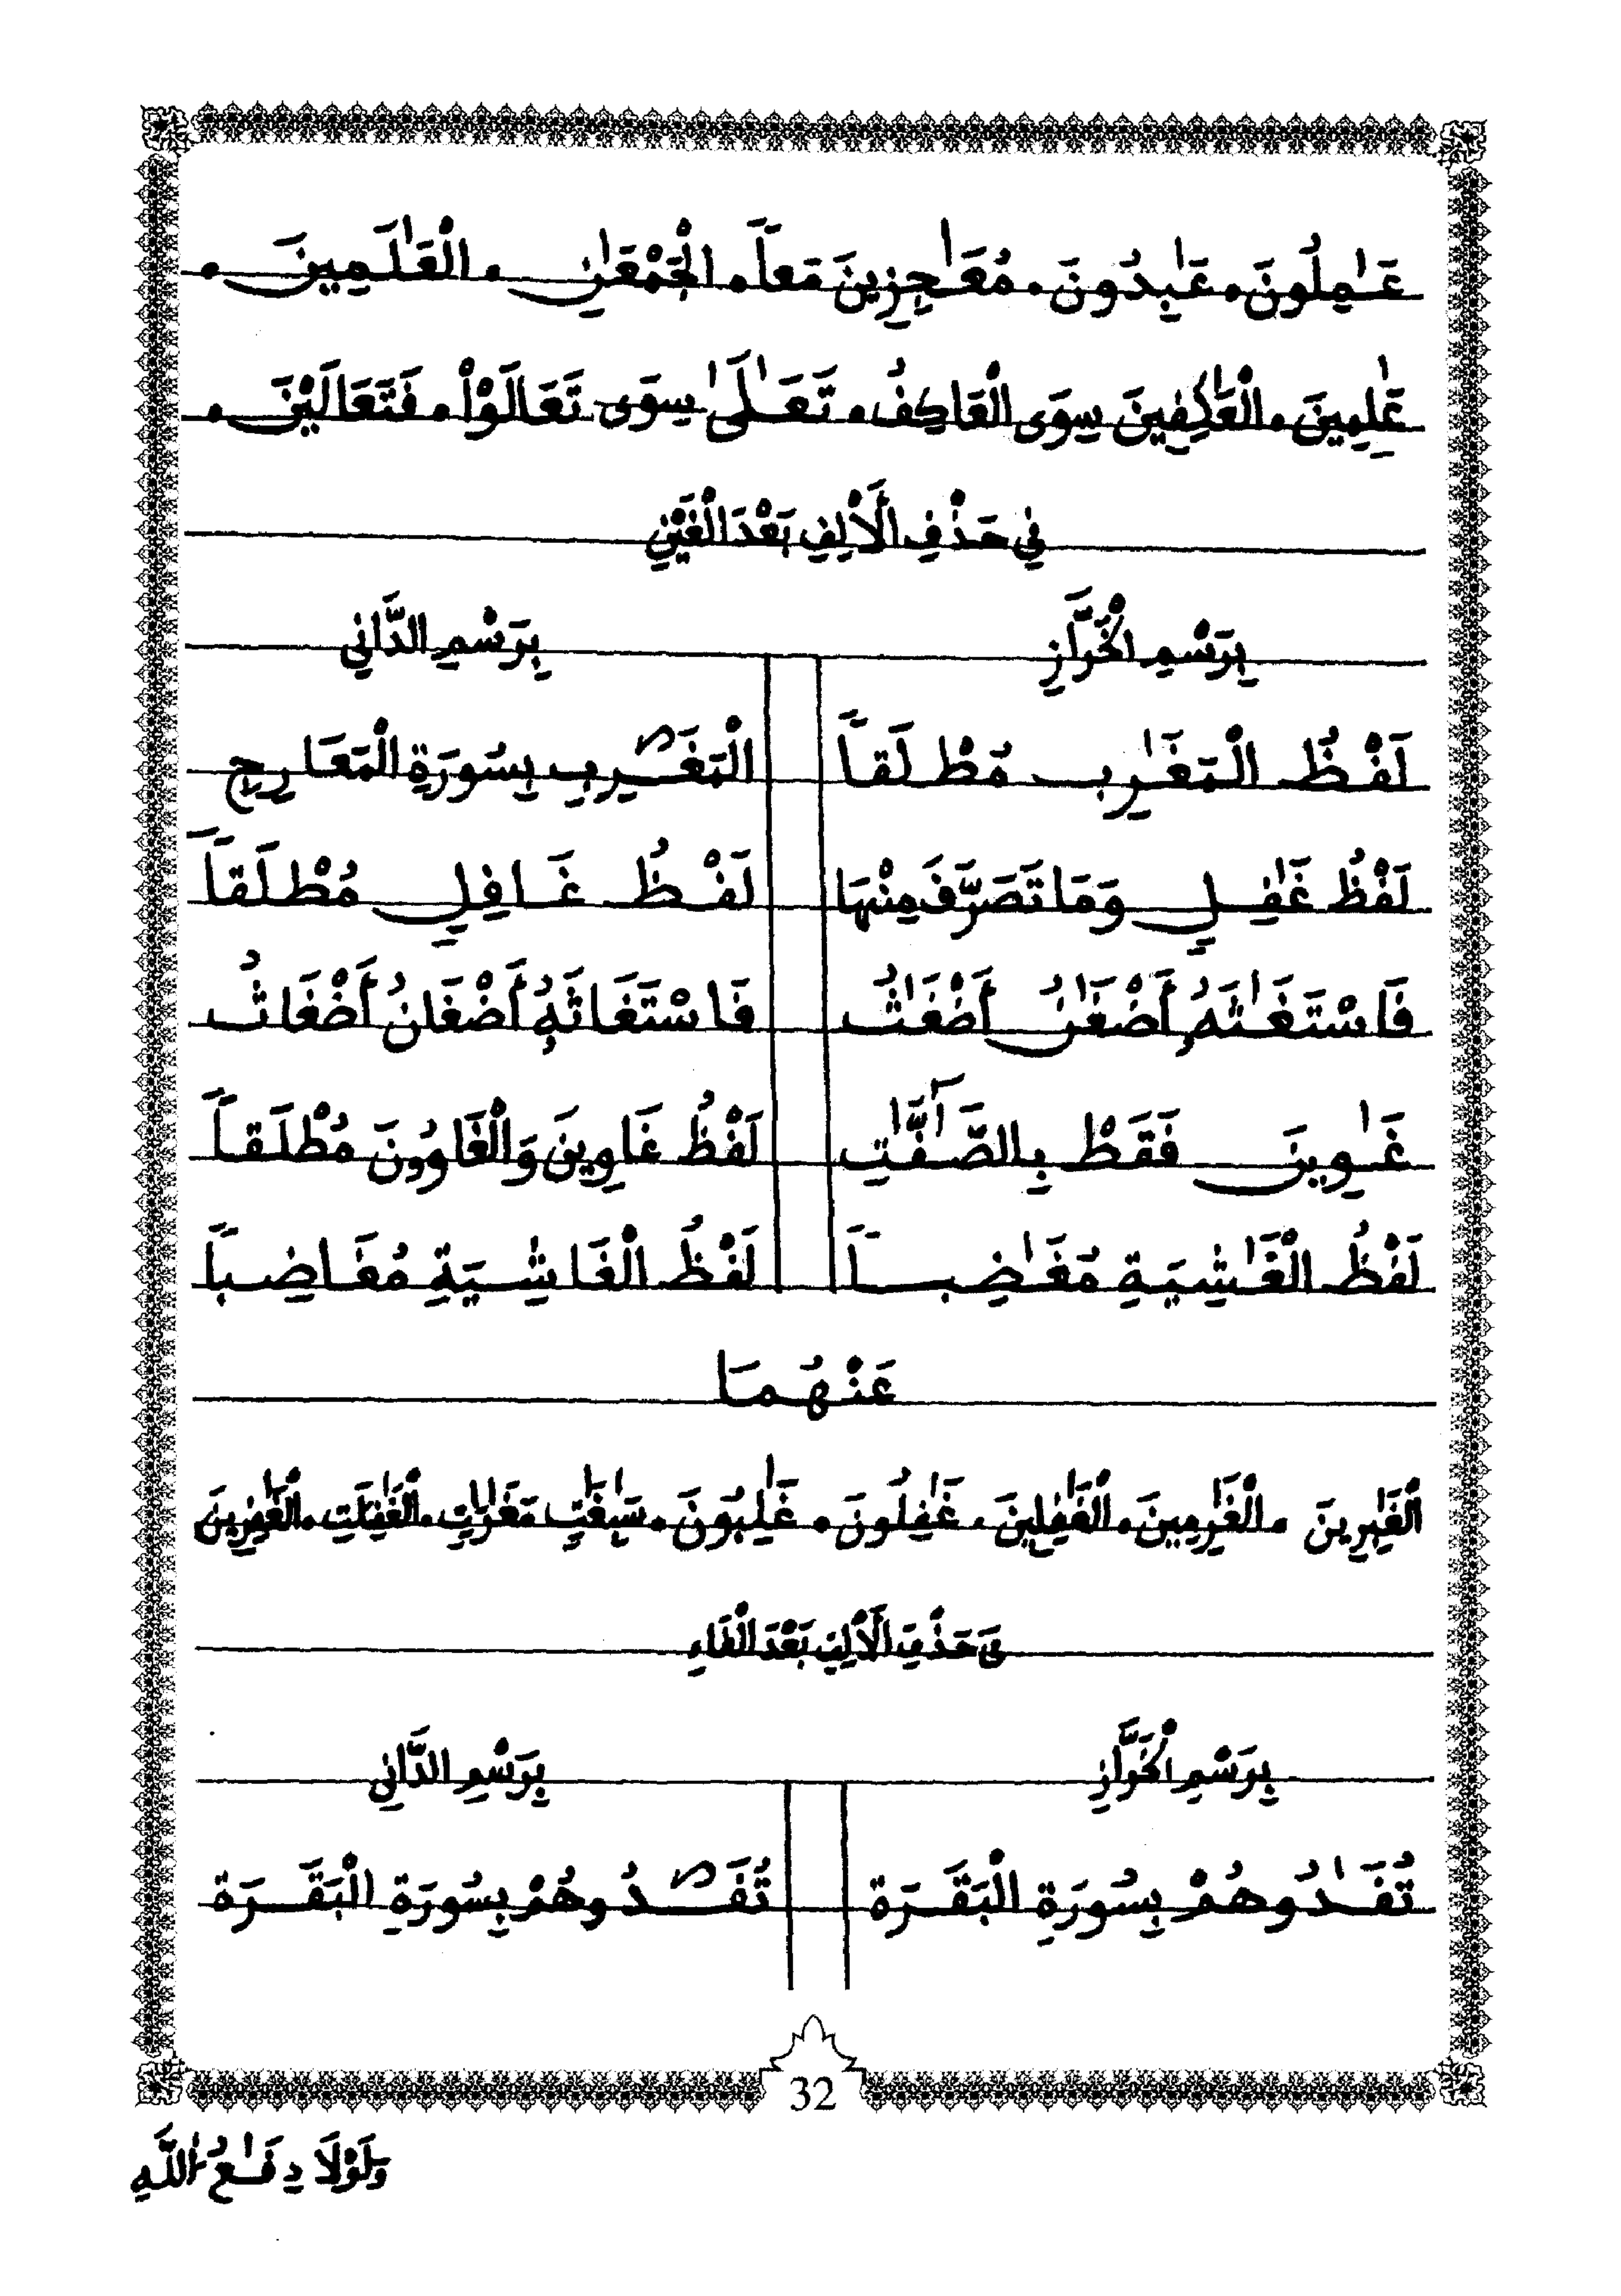 عَٰمِلُونَ. عَٰبِدُونَ. مُعَٰجِزِينَ مَعاً. الْجَمْعَٰنِ. الْعَٰلَمِينَ.
عَٰلِمِينَ. الْعَٰكِفِينَ سِوَى الْعَاكِفُ. تَعَٰلَىٰ سِوَى تَعَالَوْاْ. فَتَعَالَيْنَ.
فِي حَذْفِ الْأَلِفِ بَعْدَ الْغَيْنِ
بِرَسْمِ الْخَرَّازِ
بِرَسْمِ الدَّانِي
لَفْظُ الْمَغَٰرِبِ مُطْلَقاً
الْمَغَـٰرِبِ بِسُورَةِ الْمَعَارِجِ
لَفْظُ غَٰفِلٍ وَمَا تَصَرَّفَ مِنْهَا
لَفْظُ غَافِلٍ مُطْلَقاً
فَاسْتَغَٰثَهُ أَضْغَٰنُ أَضْغَٰثُ
فَاسْتَغَاثَهُ أَضْغَانُ أَضْغَاثُ
غَٰوِينَ فَقَطْ بِالصَّٰٓفَّٰتِ
لَفْظُ غَاوِينَ وَالْغَاوُۥنَ مُطْلَقاً
لَفْظُ الْغَٰشِيَةِ مُغَٰضِباً
لَفْظُ الْغَاشِيَةِ مُغَاضِباً
عَنْهُمَا
الْغَٰبِرِينَ. الْغَٰرِمِينَ. الْغَٰفِلِينَ. غَٰفِلُونَ. غَٰلِبُونَ. سَٰبِغَٰتٍ مَغَٰرَٰتٍ. الْغَٰفِلَٰتِ. الْغَٰفِرِينَ
فِي حَذْفِ الْأَلِفِ بَعْدَ الْفَاءِ
بِرَسْمِ الْخَرَّازِ
بِرَسْمِ الدَّانِي
تُفَٰدُوهُمْ بِسُورَةِ الْبَقَرَة
تُفَـٰدُوهُمْ بِسُورَةِ الْبَقَرَة
32
وَلَوْلَا دِفَٰعُ اللَّهِ